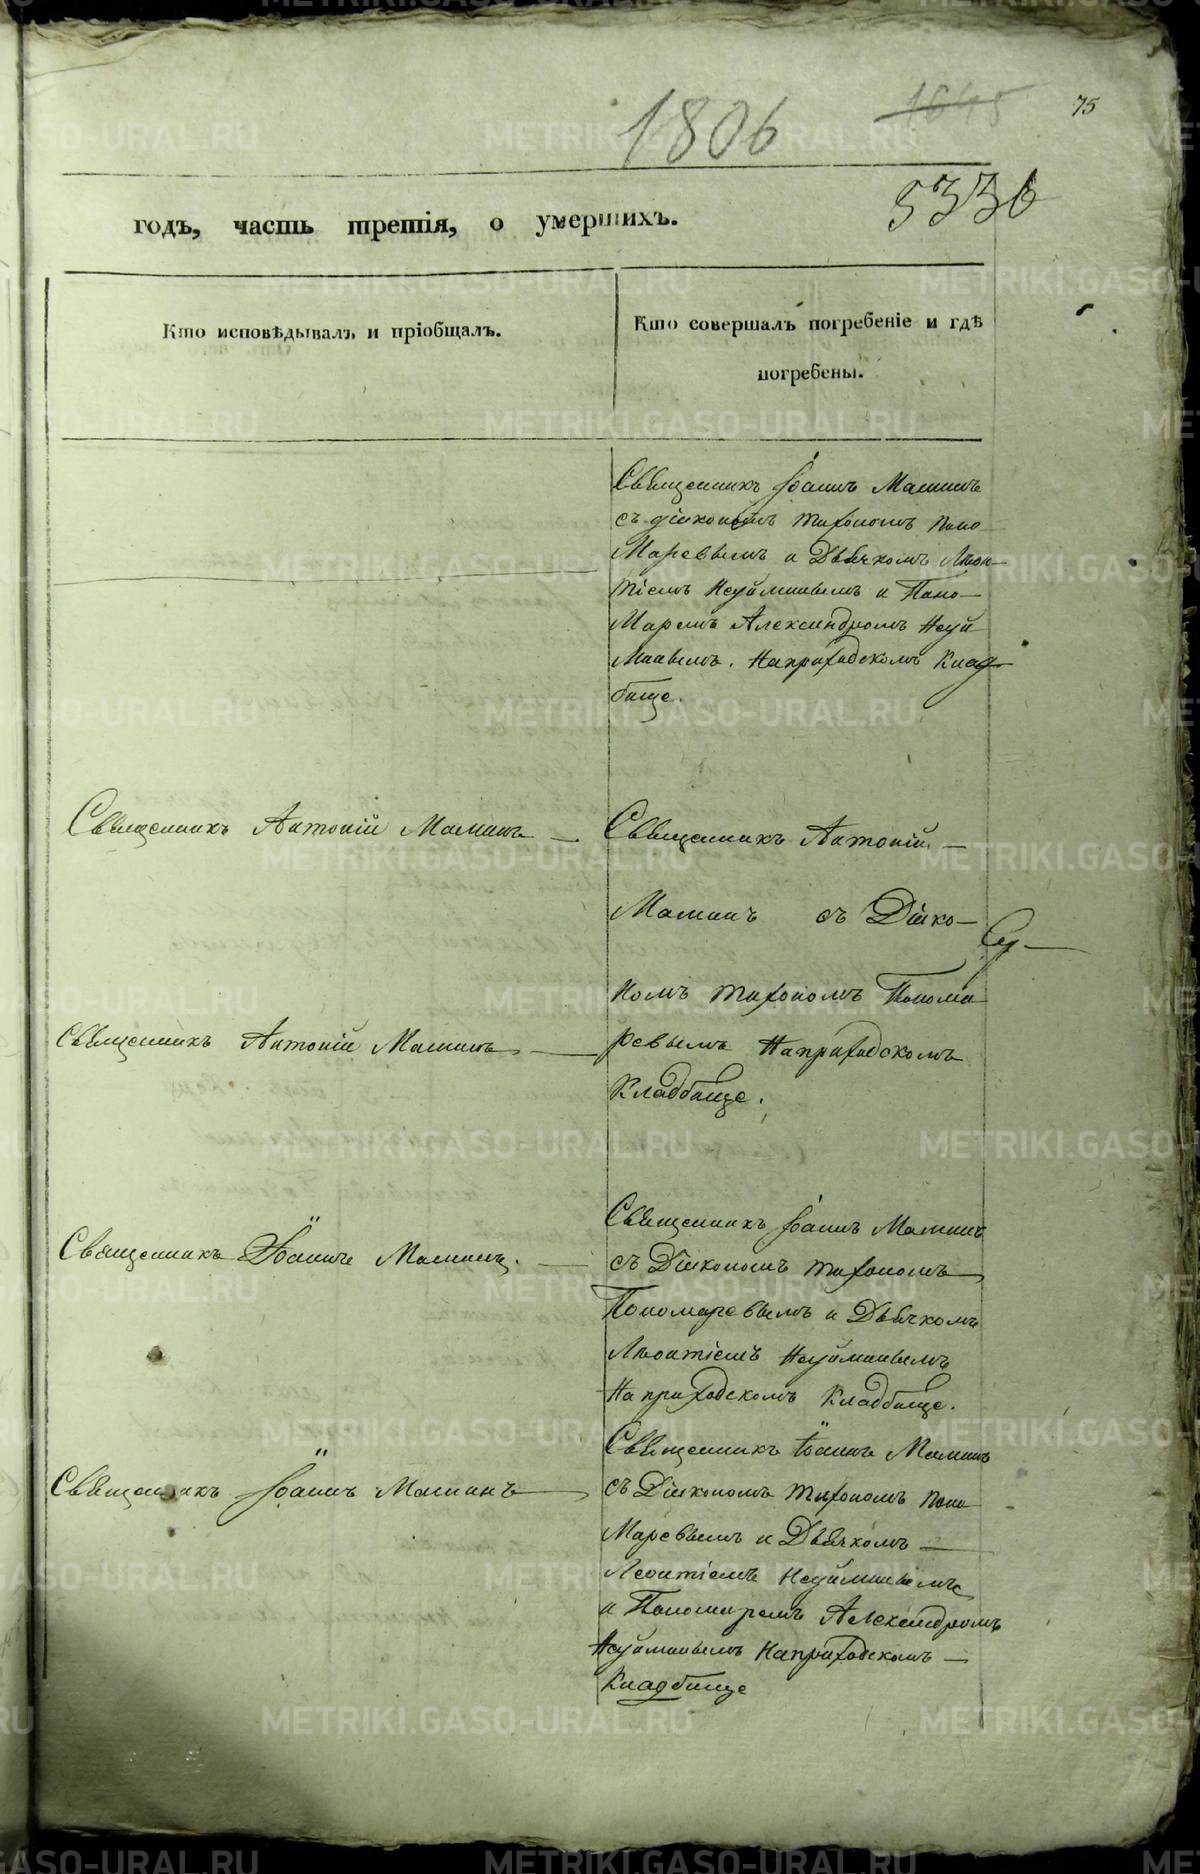 1806
1645
75
5336
годъ, часть третія, о умершихъ.
Кто исповѣдывалъ и пріобщалъ.
Кто совершалъ погребеніе и гдѣ
погребены.
Священникъ Іоаннъ Маминъ
съ діакономъ Тихономъ Поно
Маревымъ и Дьячкомъ Леон
тіемъ Неуйминымъ и Поно-
Маремъ Александромъ Неуй
Минымъ. На приходскомъ Клад
бище.
Священникъ Антоній Маминъ —
Священникъ Антоній —
Маминъ съ Діако-
номъ Тихономъ Понома
ревымъ На приходскомъ
Кладбище.
Священникъ Антоній Маминъ —
Священникъ Іоаннъ Маминъ. —
Священникъ Іоаннъ Маминъ
съ Діакономъ Тихономъ
Пономаревымъ и Дьячкомъ
Леонтіемъ Неуйминымъ
На приходскомъ Кладбище.
Священникъ Іоаннъ Маминъ —
Священникъ Іоаннъ Маминъ
съ Діакономъ Тихономъ Поно
Маревымъ и Дьячкомъ —
Леонтіемъ Неуйминымъ
и Пономаремъ Александромъ
Неуйминымъ На приходскомъ —
Кладбище
METRIKI.GASO-URAL.RU